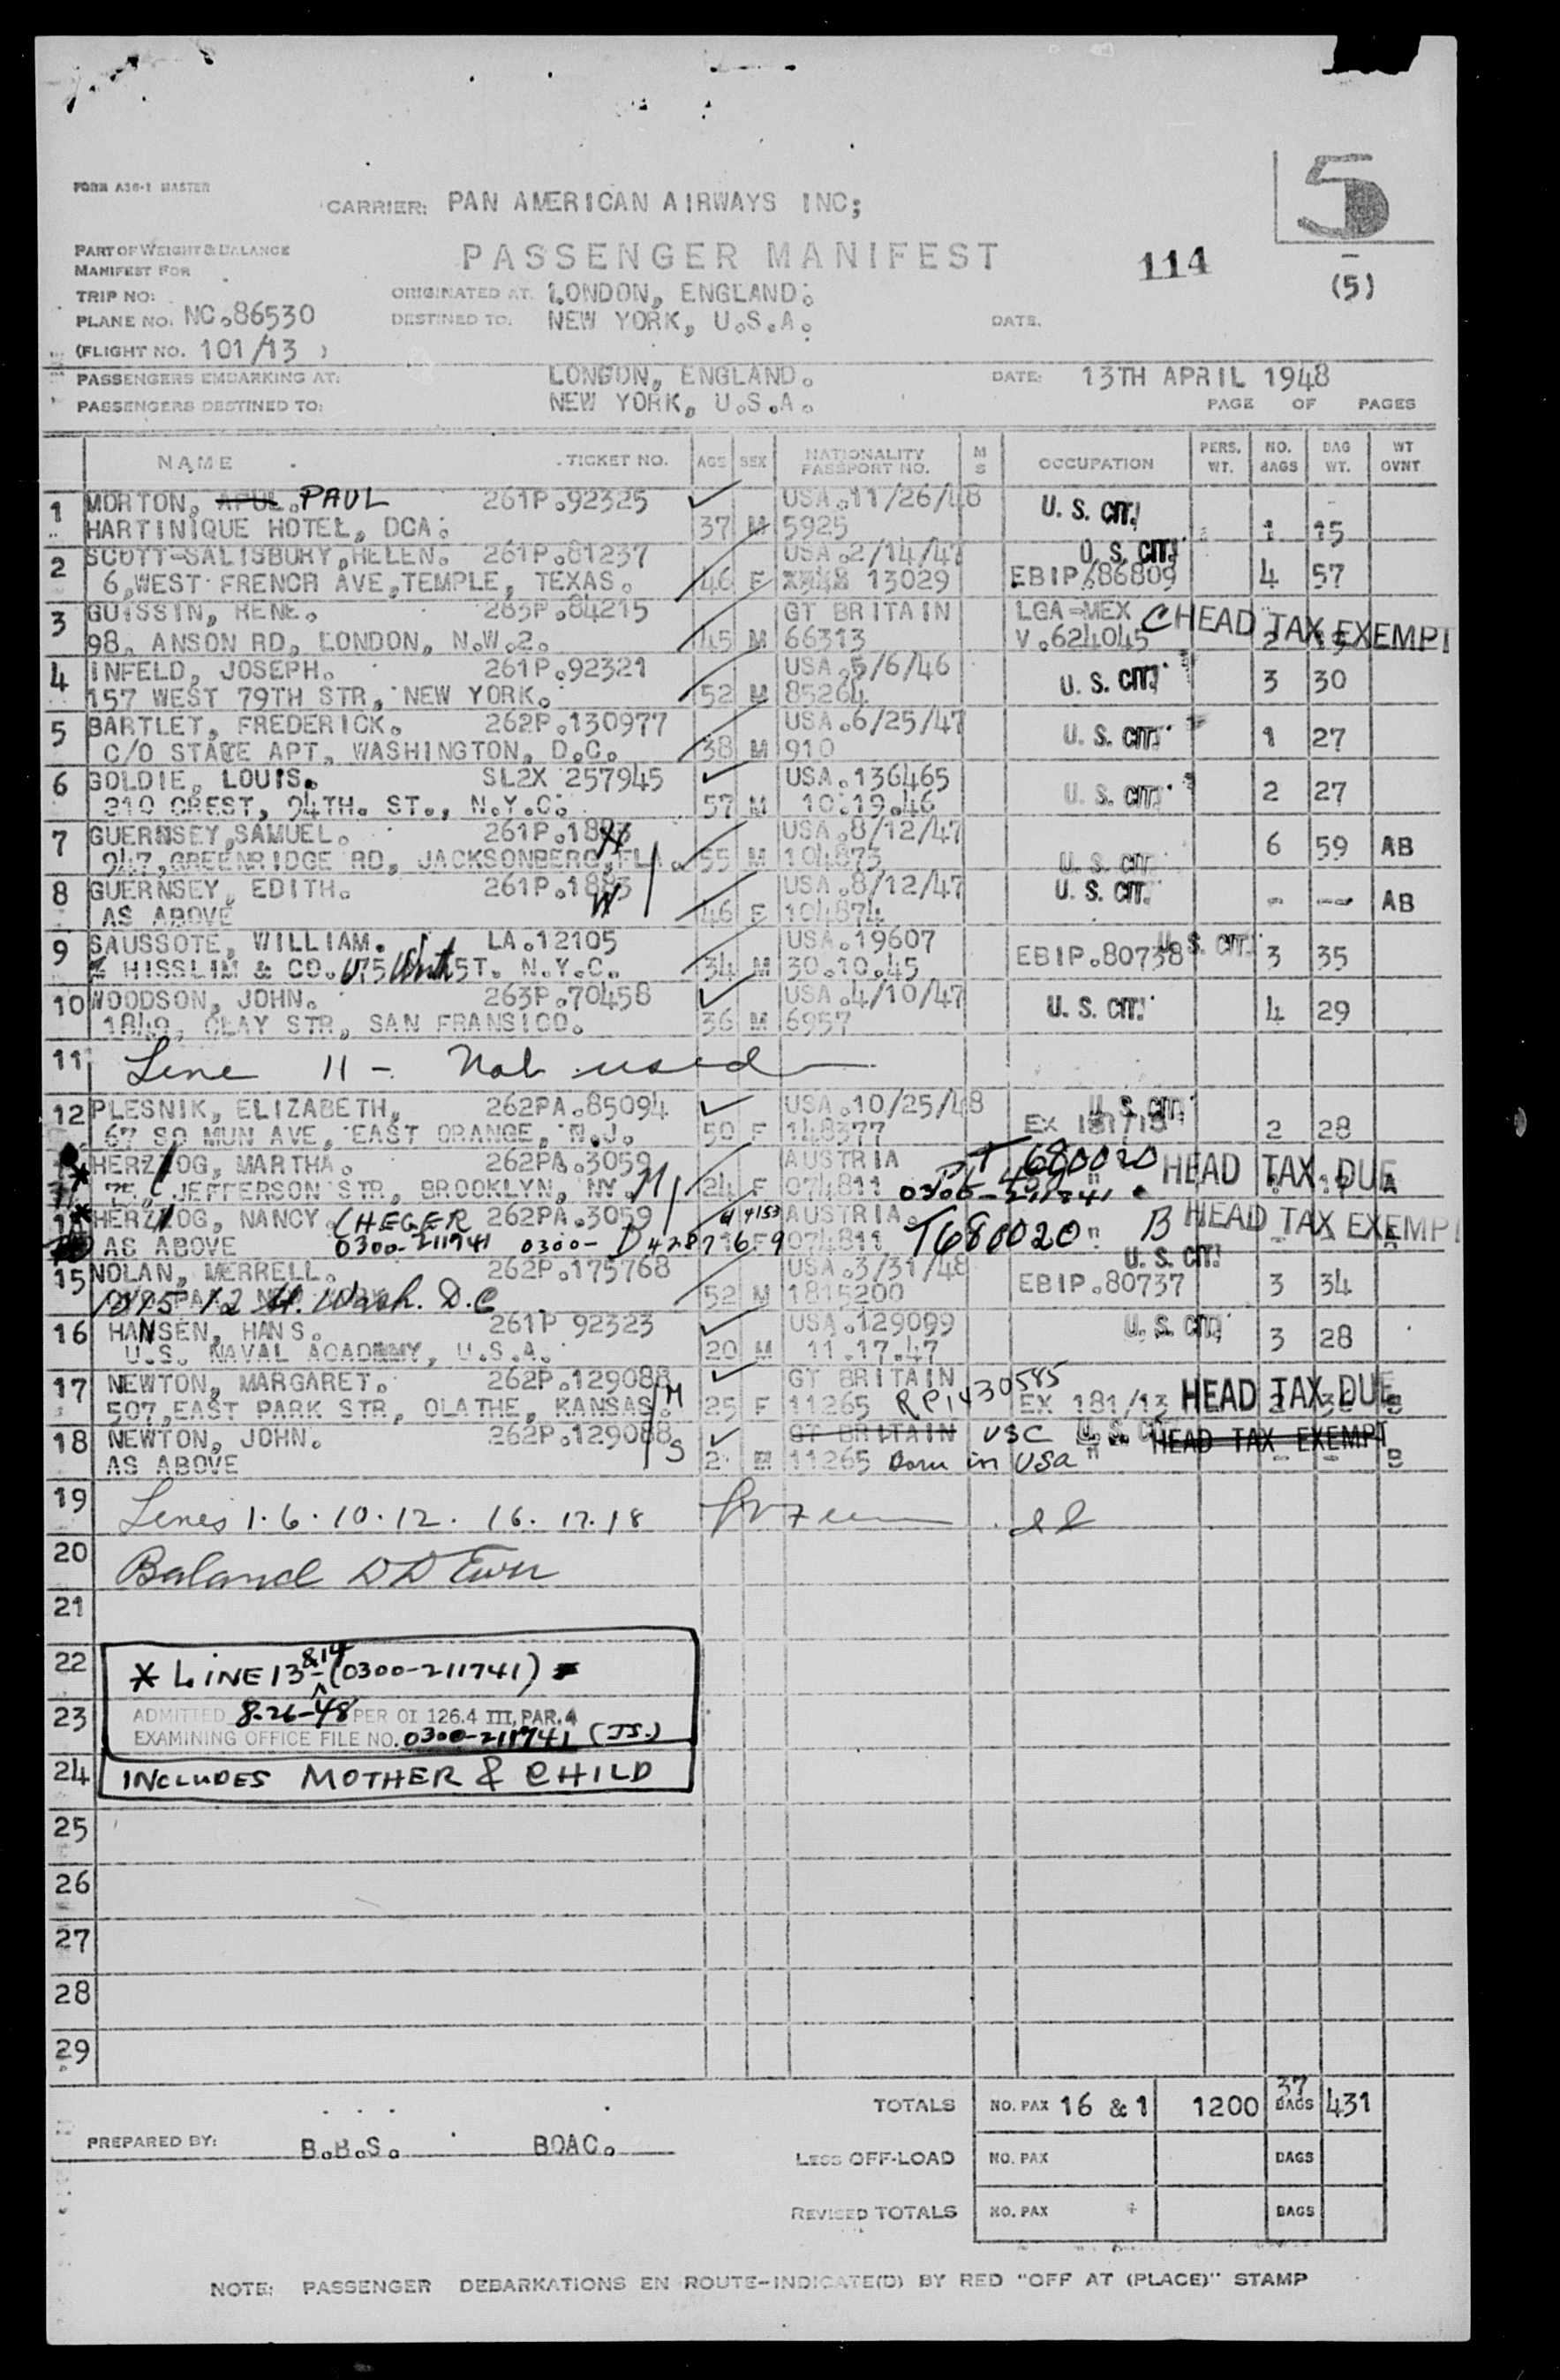 FORM A36-1 MASTER
CARRIER: PAN AMERICAN AIRWAYS INC;
5
PART OF WEIGHT & BALANCE
MANIFEST FOR
PASSENGER MANIFEST
114
(5)
TRIP NO:
ORIGINATED AT. LONDON, ENGLAND.
PLANE NO. NC.86530
DESTINED TO. NEW YORK, U.S.A.
DATE.
(FLIGHT NO. 101/13 )
PASSENGERS EMBARKING AT: LONDON, ENGLAND. DATE: 13TH APRIL 1948
PASSENGERS DESTINED TO: NEW YORK, U.S.A. PAGE OF PAGES
NAME TICKET NO. AGE SEX NATIONALITY PASSPORT NO. M S OCCUPATION PERS. WT. NO. BAGS BAG WT. WT OVNT
1 MORTON, APUL. PAUL 261P.92325 USA.11/26/48 U.S. CIT.
HARTINIQUE HOTEL, DCA. 37 M 5925 1 15
2 SCOTT-SALISBURY,HELEN. 261P.81237 USA.2/14/47 U.S. CIT.
6,WEST FRENCH AVE,TEMPLE, TEXAS. 46 F 13029 EBIP.686809 4 57
3 GUISSIN, RENE. 263P.84215 GT BRITAIN LGA-MEX C HEAD TAX EXEMPT
98, ANSON RD, LONDON, N.W.2. 45 M 66313 V.624045 2
4 INFELD, JOSEPH. 261P.92321 USA.5/6/46
157 WEST 79TH STR, NEW YORK. 52 M 85264 U.S. CIT. 3 30
5 BARTLET, FREDERICK. 262P.130977 USA.6/25/47
C/O STATE APT, WASHINGTON, D.C. 38 M 910 U.S. CIT. 1 27
6 GOLDIE, LOUIS. SL2X 257945 USA.136465
210 CREST, 94TH. ST., N.Y.C. 57 M 10.19.46 U.S. CIT. 2 27
7 GUERNSEY,SAMUEL. 261P.1883 H USA.8/12/47
947,GREENRIDGE RD, JACKSONBERG,FLA. 55 M 104873 U.S. CIT. 6 59 AB
8 GUERNSEY, EDITH. 261P.1883 W USA.8/12/47 U.S. CIT.
AS ABOVE 46 F 104874 - -- AB
9 SAUSSOTE, WILLIAM. LA.12105 USA.19607 U.S. CIT.
HISSLIM & CO. ST. N.Y.C. 34 M 30.10.45 EBIP.80738 3 35
10 WOODSON, JOHN. 263P.70458 USA.4/10/47
1849, CLAY STR, SAN FRANSICO. 36 M 6957 U.S. CIT. 4 29
11 Line 11 - Not used
12 PLESNIK, ELIZABETH, 262PA.85094 USA.10/25/48 U.S. CIT.
67 SO MUN AVE, EAST ORANGE, N.J. 50 F 148377 EX 181/13 2 28
HERZOG, MARTHA. 262PA.3059 AUSTRIA T 680020 HEAD TAX DUE
75, JEFFERSON STR, BROOKLYN, NY. M 24 F 074811 0300-211741 A
HERZOG, NANCY. (HEGER 262PA.3059 AUSTRIA. T680020 B HEAD TAX EXEMPT
AS ABOVE 0300-211741 0300- F 074811
15 NOLAN, MERRELL. 262P.175768 USA.3/31/48 U.S. CIT.
Wash. D.C 52 M 1815200 EBIP.80737 3 34
16 HANSEN, HANS. 261P 92323 USA.129099 U.S. CIT.
U.S. NAVAL ACADEMY, U.S.A. 20 M 11.17.47 3 28
17 NEWTON, MARGARET. 262P.129088 M GT BRITAIN RP1430585 HEAD TAX DUE
507,EAST PARK STR, OLATHE, KANSAS. 25 F 11265 EX 181/13 B
18 NEWTON, JOHN. 262P.129088 S GT BRITAIN USC U.S. CIT. HEAD TAX EXEMPT
AS ABOVE 2 M 11265 Born in USA " - - B
19 Lines 1.6.10.12. 16. 17.18
20 Balance
21
22 * LINE 13 & 14 - (0300-211741)
23 ADMITTED 8-26-48 PER OI 126.4 III, PAR. 4
EXAMINING OFFICE FILE NO. 0300-211741 (JS.)
24 INCLUDES MOTHER & CHILD
25
26
27
28
29
TOTALS NO. PAX 16 & 1 1200 37 BAGS 431
PREPARED BY: B.B.S. BOAC.
LESS OFF-LOAD NO. PAX BAGS
REVISED TOTALS NO. PAX BAGS
NOTE: PASSENGER DEBARKATIONS EN ROUTE-INDICATE(D) BY RED "OFF AT (PLACE)" STAMP